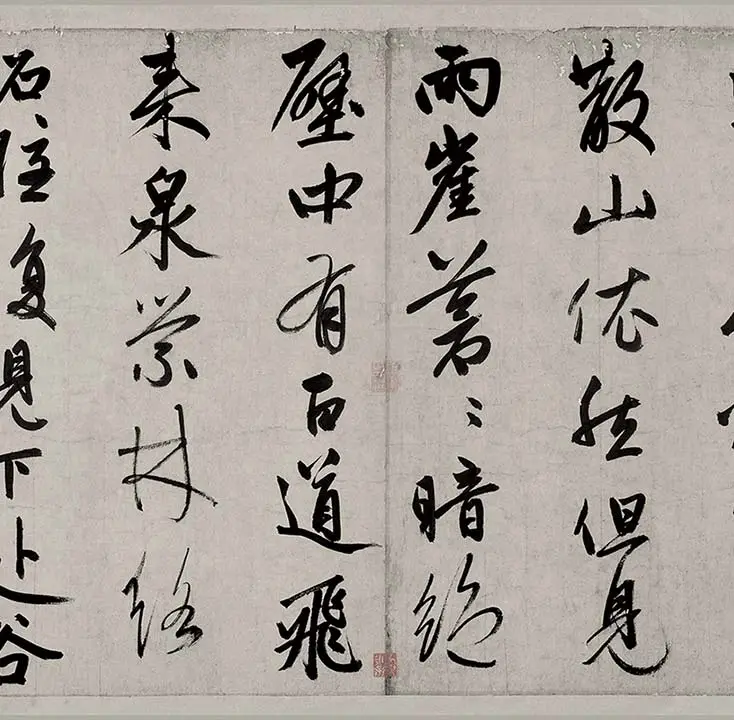 散山依然但見
兩崖蒼〻暗絕
壁中有百道飛
來泉縈林絡
石隱复見下赴谷